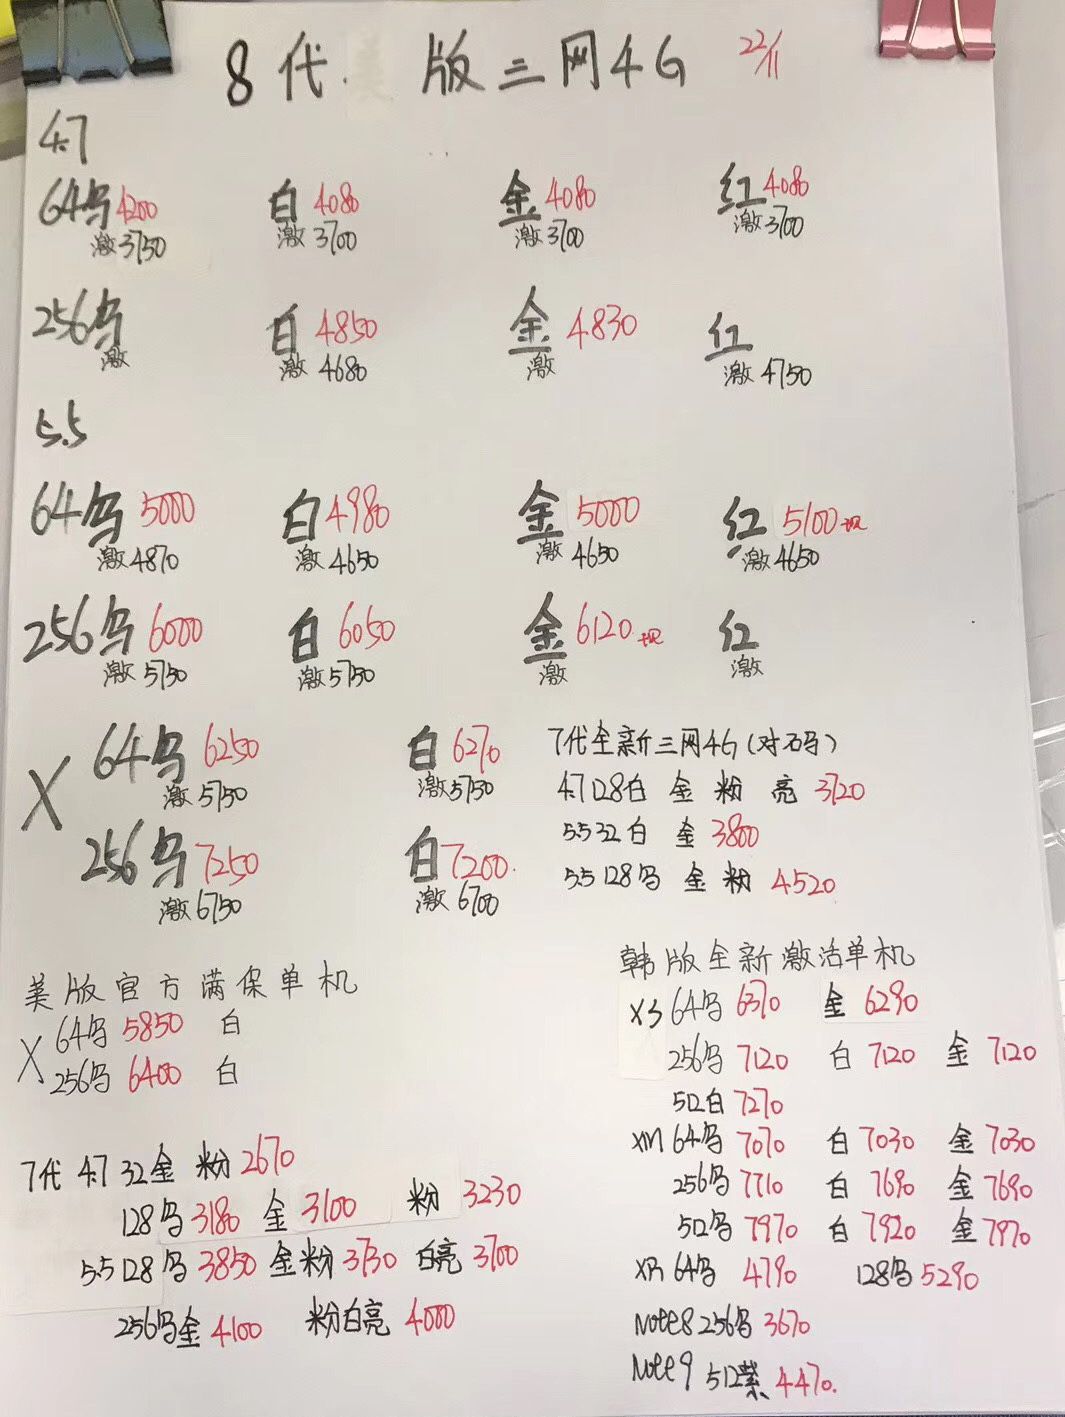 8代 美版三网4G 22/11
4.7
64乌4200 白4080 金4080 红4080
激3750 激3700 激3700 激3700
256乌 白4850 金4830 红
激 激4680 激 激4750
5.5
64乌5000 白4980 金5000 红5100+现
激4870 激4650 激4650 激4650
256乌6000 白6050 金6120+现 红
激5750 激5750 激 激
X 64乌6250 白6270
激5750 激5750
256乌7250 白7200.
激6750 激6700
7代全新三网4G(对石马)
4.7 128白 金 粉 亮 3720
5.5 32白 金 3800
5.5 128乌 金 粉 4520
美版官方满保单机
X 64乌5850 白
256乌6400 白
7代 4.7 32金 粉2670
128乌3180 金3100 粉3230
5.5 128乌3850 金粉3730 白亮3700
256乌金4100 粉白亮4000
韩版全新激活单机
XS 64乌6370 金6290
256乌7120 白7120 金7120
512白7270
XM 64乌7070 白7030 金7030
256乌7710 白7690 金7690
512乌7970 白7920 金7970
XR 64乌 4790 128乌5290
Note8 256乌3670
Note9 512紫4470.